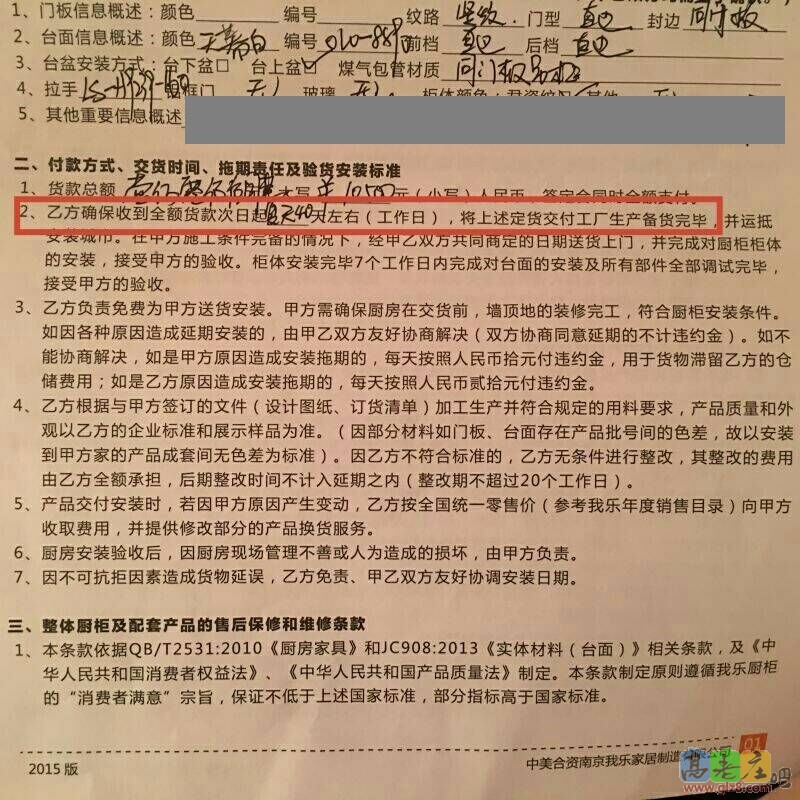 1、门板信息概述：颜色 编号 纹路 竖纹 门型 直边 封边 同门板
2、台面信息概述：颜色 编号 010-889 前档 直边 后档 直边
3、台盆安装方式：台下盆□ 台上盆□ 煤气包管材质 同门板
4、拉手 框门 玻璃 柜体颜色：
5、其他重要信息概述
二、付款方式、交货时间、拖期责任及验货安装标准
1、货款总额 大写 10500元（小写）人民币，签定合同时全额支付。
2、乙方确保收到全额货款次日起 40天左右（工作日），将上述定货交付工厂生产备货完毕，并运抵
安装城市。在甲方施工条件完备的情况下，经甲乙双方共同商定的日期送货上门，并完成对厨柜柜体
的安装，接受甲方的验收。柜体安装完毕7个工作日内完成对台面的安装及所有部件全部调试完毕，
接受甲方的验收。
3、乙方负责免费为甲方送货安装。甲方需确保厨房在交货前，墙顶地的装修完工，符合厨柜安装条件。
如因各种原因造成延期安装的，由甲乙双方友好协商解决（双方协商同意延期的不计违约金）。如不
能协商解决，如是甲方原因造成安装拖期的，每天按照人民币拾元付违约金，用于货物滞留乙方的仓
储费用；如是乙方原因造成安装拖期的，每天按照人民币贰拾元付违约金。
4、乙方根据与甲方签订的文件（设计图纸、订货清单）加工生产并符合规定的用料要求，产品质量和外
观以乙方的企业标准和展示样品为准。（因部分材料如门板、台面存在产品批号间的色差，故以安装
到甲方家的产品成套间无色差为标准）。因乙方不符合标准的，乙方无条件进行整改，其整改的费用
由乙方全额承担，后期整改时间不计入延期之内（整改期不超过20个工作日）。
5、产品交付安装时，若因甲方原因产生变动，乙方按全国统一零售价（参考我乐年度销售目录）向甲方
收取费用，并提供修改部分的产品换货服务。
6、厨房安装验收后，因厨房现场管理不善或人为造成的损坏，由甲方负责。
7、因不可抗拒因素造成货物延误，乙方免责、甲乙双方友好协调安装日期。
三、整体厨柜及配套产品的售后保修和维修条款
1、本条款依据QB/T2531:2010《厨房家具》和JC908:2013《实体材料（台面）》相关条款，及《中
华人民共和国消费者权益法》、《中华人民共和国产品质量法》制定。本条款制定原则遵循我乐厨柜
的“消费者满意”宗旨，保证不低于上述国家标准，部分指标高于国家标准。
2015版
中美合资南京我乐家居制造有限公司 01
高老庄吧
www.gl78.com